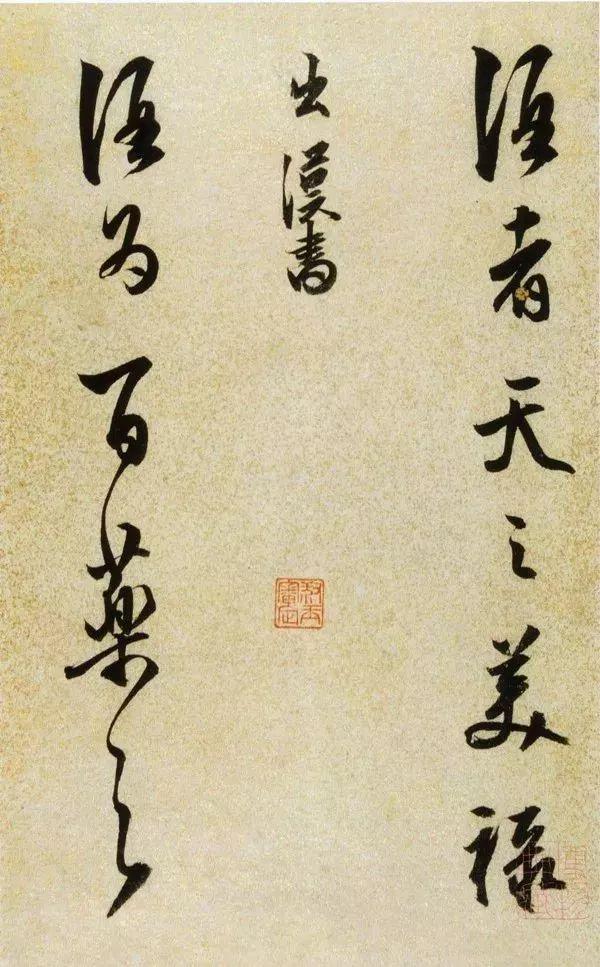 酒者天之美祿
出漢書
酒為百藥之